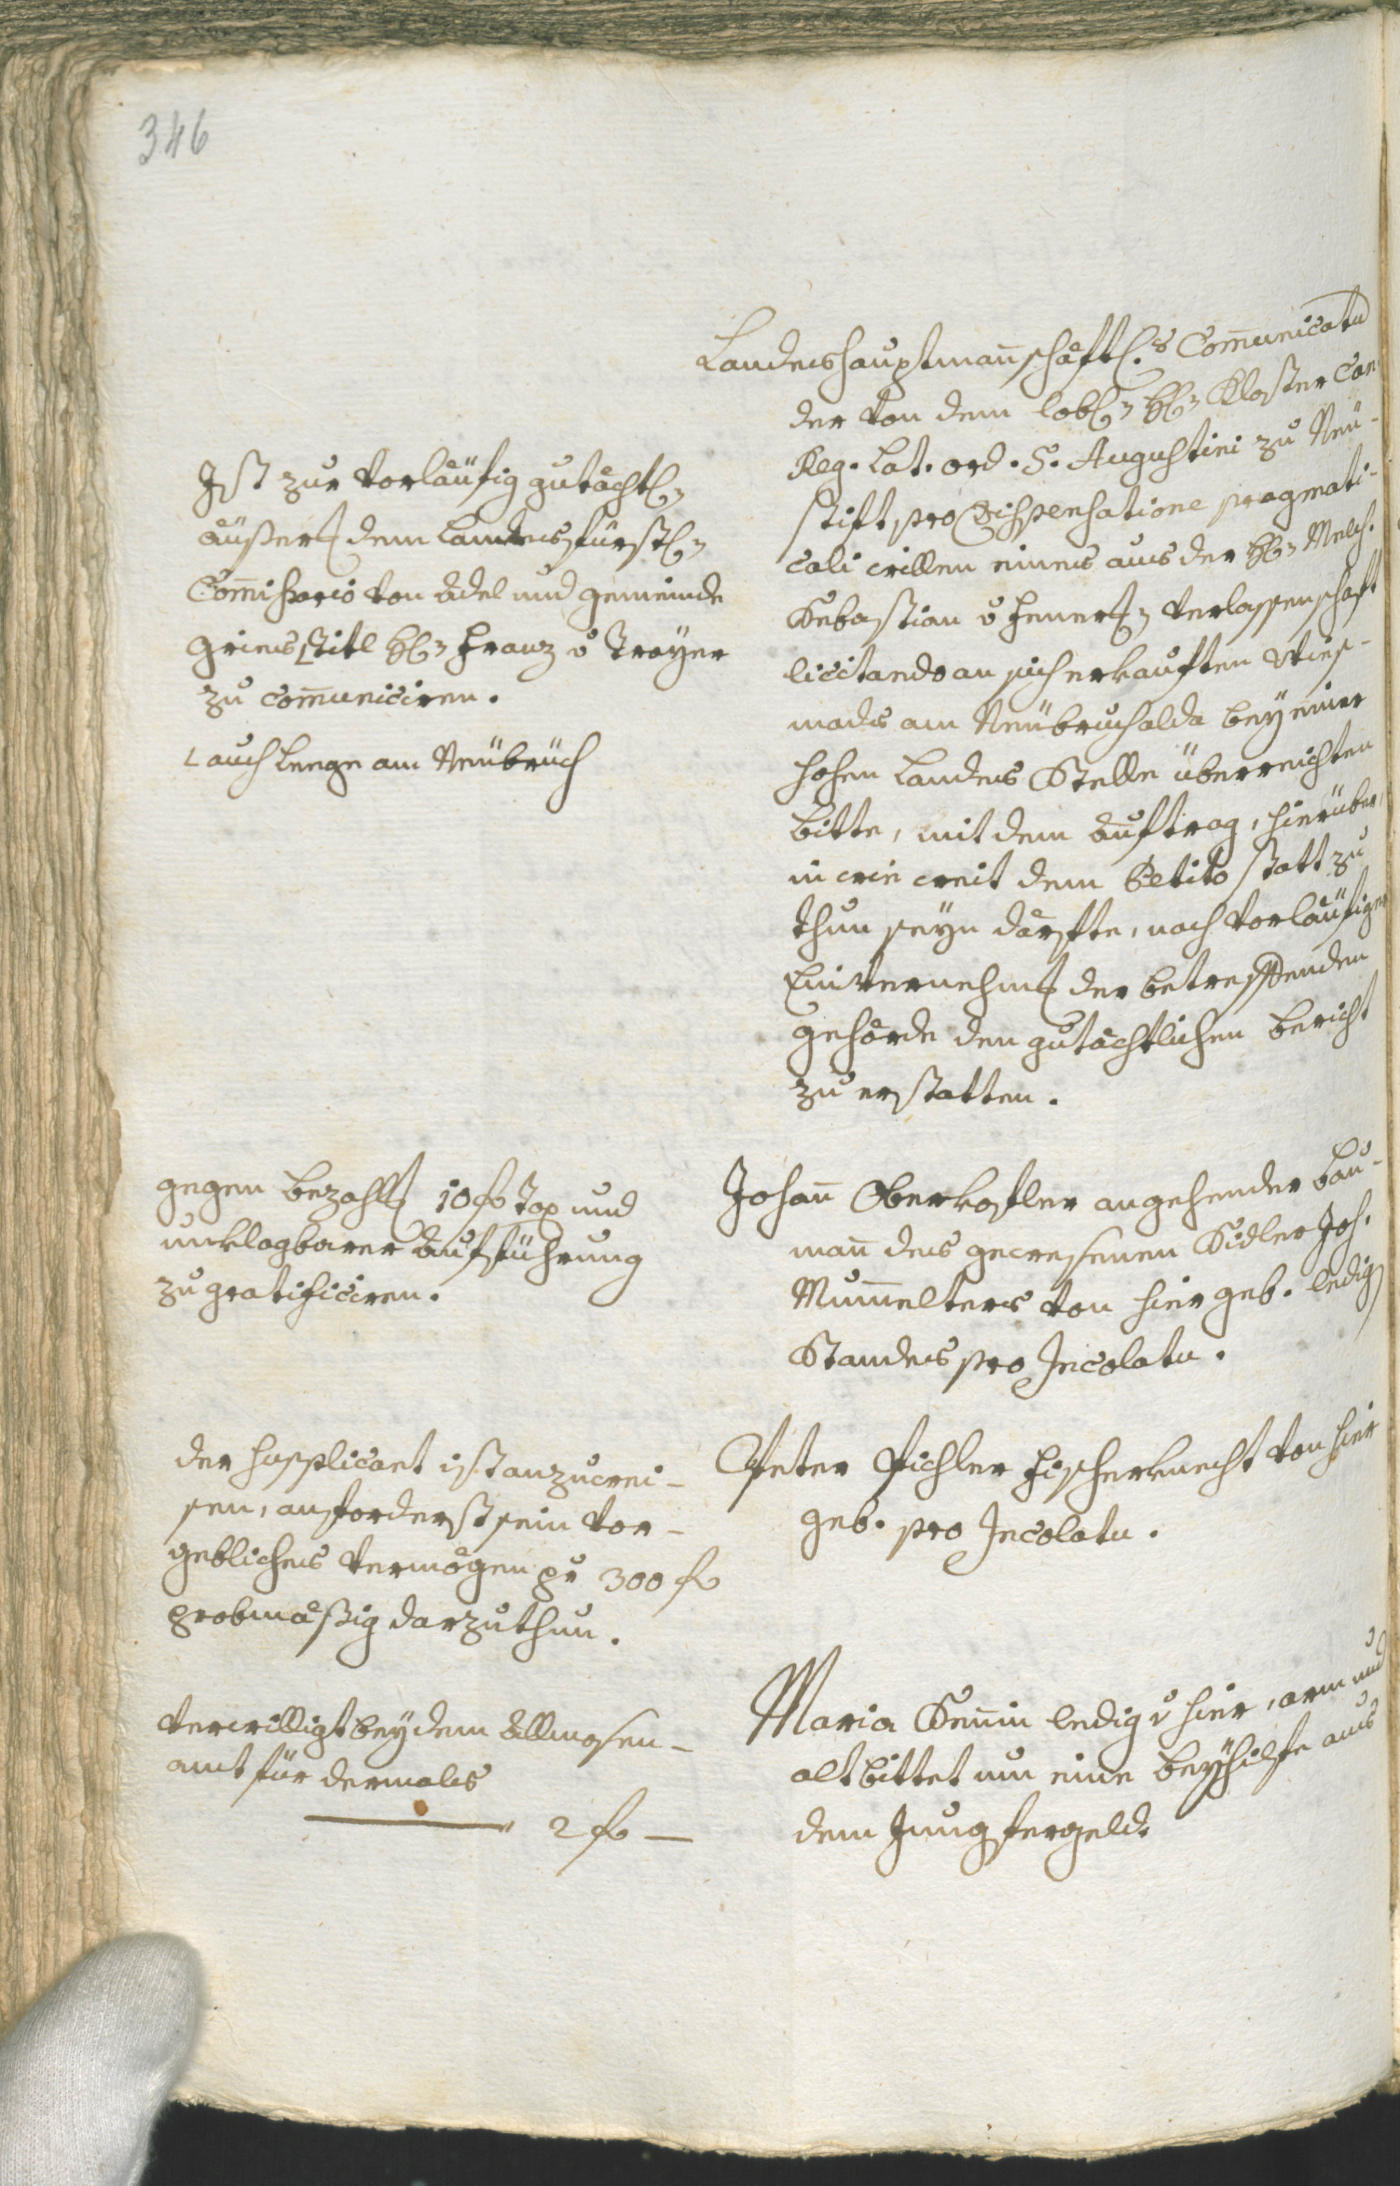 346
Landeshauptmañschäftl.s Com̃unicatu
der von dem löbl. H. Kloster Can
Reg. Lat. ord. S. Augustini zu Neu-
stift, pro Dispensatione pragmati-
cali willen eines aus der H. Melch.
Sebastian v Fenner Verlassenschaft
licitando an sich erkauften Wies-
mads am Neubruchalda bey einer
hohen Landes Stelle überreichten
bitte, mit dem auftrag, hierüber,
in wie weit dem Petito statt zu
thun seyn därfte, nach vorläufiger
Einvernehmung der betreffenden
gehörde den gutächtlichen bericht
zu erstatten.
Ist zur vorläufig gutächtl.
äußerung dem Landesfürstl.
Com̃issario von adel und gemeinde
Gries Titl H. Franz v Troyer
zu com̃uniciren.
auch Lenge am Neubruch
Johañ Oberkofler angehender bau-
mañ des gewesenen Sidler Joh.
Mum̃elters von hier geb. ledig
Standes pro Incolatu.
gegen bezahlung 10 f Tax und
unklagbarer Aufführung
zu gratificiren.
Peter Pichler Fischerknecht von hier
geb. pro Incolatu.
der Supplicant ist anzuwei-
sen, anforderst sein vor-
gebliches Vermögen pr 300 f
probmäßig darzuthun.
Maria Señin ledig v hier, arm und
alt bittet um eine beyhilfe aus
dem Jungfergeld.
verwilligt bey dem Allmosen-
amt für dermales
2 f —